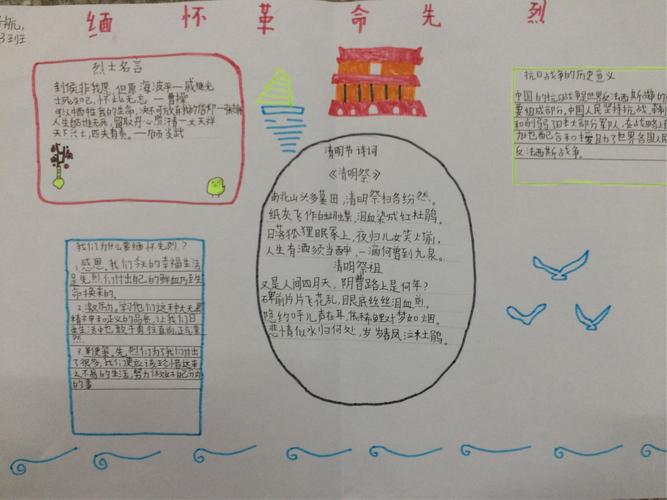 缅怀革命先烈
3班
烈士名言
封侯非我愿，但愿海波平—戚继光
士死知己，怀此无忘 —曹操
可以牺牲我的生命，决不可放弃我的信仰—张
人生自古谁无死，留取丹心照汗青—文天祥
天下兴亡，匹夫有责。—顾炎武
抗日战争的历史意义
中国的抗日战争世界反法西斯战争的
要组成部分，中国人民坚持抗战
和削弱
加也配合和支援了世界各国人民
反法西斯战争。
清明节诗词
《清明祭》
南北山头多墓田，清明祭扫各纷然。
纸灰飞作白蝴蝶，泪血染成红杜鹃。
日落狐狸眠冢上，夜归儿女笑灯前，
人生有酒须当醉，一滴何曾到九泉。
清明祭祖
又是人间四月天，阴曹路上是何年？
碑前片片飞花乱，眼底丝丝泪血煎，
隐约呼儿声在耳，依稀对梦如烟。
悲情似水归何处，岁岁春风泣杜鹃。
我们为什么要缅怀先烈？
1.感恩。我们今天的幸福生活
是先烈们付出自己的鲜血乃至生
命换来的。
2.激励。学习他们这种大无畏
精神和正义的品质，让我们日
后生活中也敢于勇往直前，正
3.
很多，我们更应该珍惜这来
之不易的生活，努力做好自己分内
的事